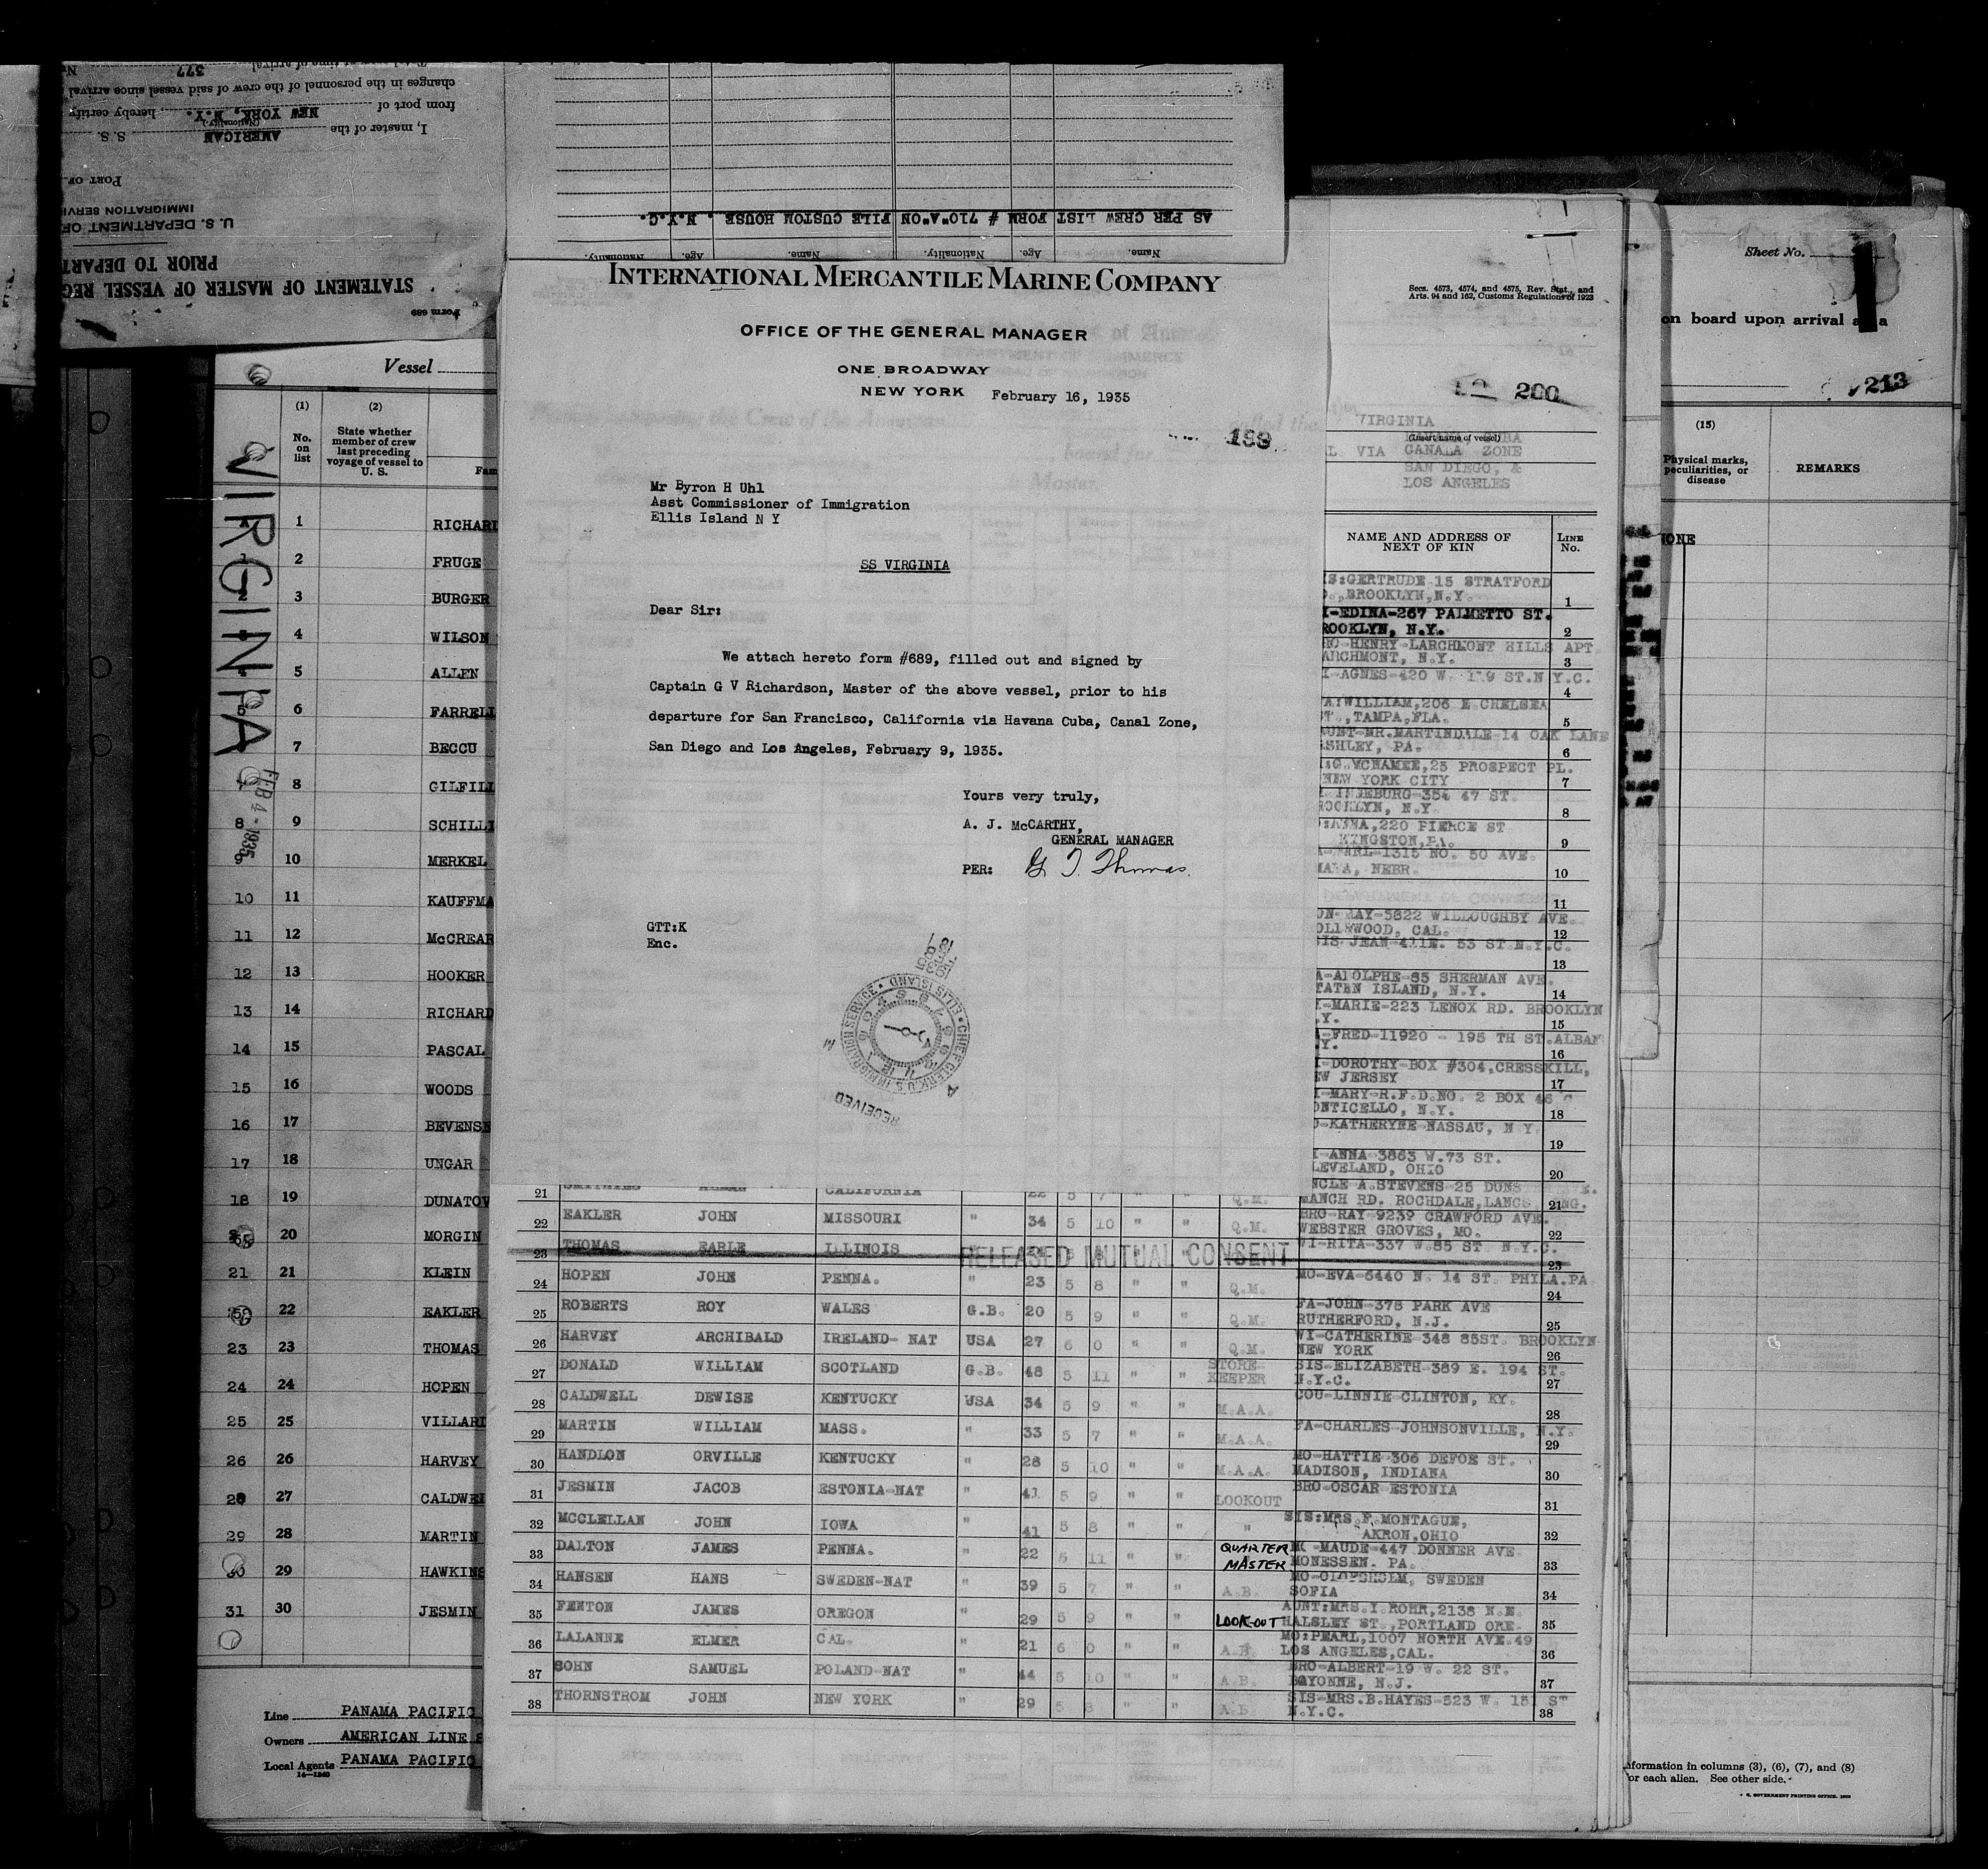 STATEMENT OF MASTER OF VESSEL REG
PRIOR TO DEPART
U. S. DEPARTMENT OF
IMMIGRATION SERVI
PORT OF
Form 689
I, master of the AMERICAN S. S.
(Nationality)
from port of NEW YORK, N.Y. , hereby certify
changes in the personnel of the crew of said vessel since arrival
377
Name. Age. Nationality. Name. Age. Nationality.
AS PER CREW LIST FORM # 710"A"ON FILE CUSTOM HOUSE , N.Y.C.
INTERNATIONAL MERCANTILE MARINE COMPANY
OFFICE OF THE GENERAL MANAGER
ONE BROADWAY
NEW YORK February 16, 1935
199
Mr Byron H Uhl
Asst Commissioner of Immigration
Ellis Island N Y
SS VIRGINIA
Dear Sir:
We attach hereto form #689, filled out and signed by
Captain G V Richardson, Master of the above vessel, prior to his
departure for San Francisco, California via Havana Cuba, Canal Zone,
San Diego and Los Angeles, February 9, 1935.
Yours very truly,
A. J. McCARTHY,
GENERAL MANAGER
PER: G T Thomas
GTT:K
Enc.
CHIEF CLERK, U.S. IMMIGRATION SERVICE • ELLIS ISLAND •
RECEIVED
Vessel
(1) (2)
No. on list
State whether member of crew last preceding voyage of vessel to U. S.
Fam
VIRGINIA
FEB 4 - 1935
1 RICHARD
2 FRUGE
3 BURGER
4 WILSON
5 ALLEN
6 FARRELL
7 BECCU
8 GILFILL
8 9 SCHILLI
9 10 MERKEL
10 11 KAUFFMA
11 12 McCREAR
12 13 HOOKER
13 14 RICHARD
14 15 PASCAL
15 16 WOODS
16 17 BEVENSE
17 18 UNGAR
18 19 DUNATOV
20 MORGIN
21 21 KLEIN
22 EAKLER
23 23 THOMAS
24 24 HOPEN
25 25 VILLARD
26 26 HARVEY
28 27 CALDWEL
29 28 MARTIN
30 29 HAWKINS
31 30 JESMIN
Line PANAMA PACIFIC
Owners AMERICAN LINE S
Local Agents PANAMA PACIFIC
14—1240
Secs. 4573, 4574, and 4575, Rev. Stat., and
Arts. 94 and 162, Customs Regulations of 1923
200
VIRGINIA
(Insert name of vessel)
L VIA CANALA ZONE
SAN DIEGO, &
LOS ANGELES
NAME AND ADDRESS OF NEXT OF KIN
LINE No.
S:GERTRUDE-15 STRATFORD
BROOKLYN,N.Y. 1
I-EDINA-267 PALMETTO ST.
ROOKLYN, N.Y. 2
HENRY-LARCHMONT HILLS APT
ARCHMONT, N.Y. 3
I-AGNES-420 W. 119 ST.N Y.C. 4
WILLIAM,206 E CHELSEA
ST.,TAMPA,FLA. 5
UNT-MR.MARTINDALE-14 OAK LANE
ASHLEY, PA. 6
G.MCNAMEE,25 PROSPECT PL.
NEW YORK CITY 7
INGEBURG-354 47 ST.
ROOKLYN, N.Y 8
ANNA,220 PIERCE ST
KINGSTON,PA. 9
EARL-1315 NO. 50 AVE.
MAHA, NEBR. 10
11
ON-RAY-5822 WILLOUGHBY AVE.
OLLYWOOD, CAL. 12
SIS JEAN-411E. 53 ST.N.Y.C. 13
A-ADOLPHE-85 SHERMAN AVE.
TATEN ISLAND, N.Y. 14
I-MARIE-223 LENOX RD. BROOKLYN
.Y. 15
A-FRED-11920 - 195 TH ST.ALBAN
.Y. 16
I-DOROTHY-BOX #304,CRESSKILL,
EW JERSEY 17
I-MARY-R.F.D.NO. 2 BOX 46
ONTICELLO, N.Y. 18
O-KATHERYNE-NASSAU, N Y. 19
I-ANNA-3863 W.73 ST.
LEVELAND, OHIO 20
NCLE A.STEVENS-25 DUNS
RANCH RD. ROCHDALE,LANCS ENG. 21
21 CALIFORNIA 22 5 7 " " Q.M.
22 EAKLER JOHN MISSOURI " 34 5 10 " " Q.M. BRO-RAY-9239 CRAWFORD AVE.
WEBSTER GROVES, MO. 22
23 THOMAS EARLE ILLINOIS RELEASED MUTUAL CONSENT WI-RITA-337 W.85 ST N.Y.C. 23
24 HOPEN JOHN PENNA. " 23 5 8 " " Q.M. MO-EVA-5440 N. 14 ST. PHILA.PA 24
25 ROBERTS ROY WALES G.B. 20 5 9 " " Q.M. FA-JOHN-378 PARK AVE
RUTHERFORD, N.J. 25
26 HARVEY ARCHIBALD IRELAND- NAT USA 27 6 0 " " Q.M. WI-CATHERINE-348 85ST. BROOKLYN
NEW YORK 26
27 DONALD WILLIAM SCOTLAND G.B. 48 5 11 " " STORE-KEEPER SIS-ELIZABETH-389 E. 194 ST.
N.Y.C. 27
28 CALDWELL DEWISE KENTUCKY USA 34 5 9 " " M.A.A. COU-LINNIE-CLINTON, KY. 28
29 MARTIN WILLIAM MASS. " 33 5 7 " " M.A.A. FA-CHARLES-JOHNSONVILLE, N.Y. 29
30 HANDLON ORVILLE KENTUCKY " 28 5 10 " " M.A.A. MO-HATTIE-306 DEFOE ST.
MADISON, INDIANA 30
31 JESMIN JACOB ESTONIA-NAT " 41 5 9 " " LOOKOUT BRO-OSCAR-ESTONIA 31
32 MCCLELLAN JOHN IOWA " 41 5 8 " " " SIS:MRS.F.MONTAGUE,
AKRON,OHIO 32
33 DALTON JAMES PENNA. " 22 5 11 " " QUARTER MASTER -MAUDE-447 DONNER AVE
MONESSEN. PA. 33
34 HANSEN HANS SWEDEN-NAT " 39 5 7 " " A.B. SWEDEN
SOFIA 34
35 FENTON JAMES OREGON " 29 5 9 " " LOOK-OUT AUNT:MRS.I.ROHR,2138 N.E.
HALSLEY ST.,PORTLAND ORE. 35
36 LALANNE ELMER CAL. " 21 6 0 " " A.B. MO:PEARL,1007 NORTH AVE.49
LOS ANGELES,CAL. 36
37 SOHN SAMUEL POLAND-NAT " 44 5 10 " " A.B. BRO-ALBERT-19 W. 22 ST.
BAYONNE, N.J. 37
38 THORNSTROM JOHN NEW YORK " 29 5 8 " " A.B. SIS-MRS.B.HAYES-523 W. 151 ST
N.Y.C. 38
Sheet No. 1
on board upon arrival at a
213
(15)
Physical marks, peculiarities, or disease
REMARKS
NONE
information in columns (3), (6), (7), and (8)
for each alien. See other side.
U. S. GOVERNMENT PRINTING OFFICE